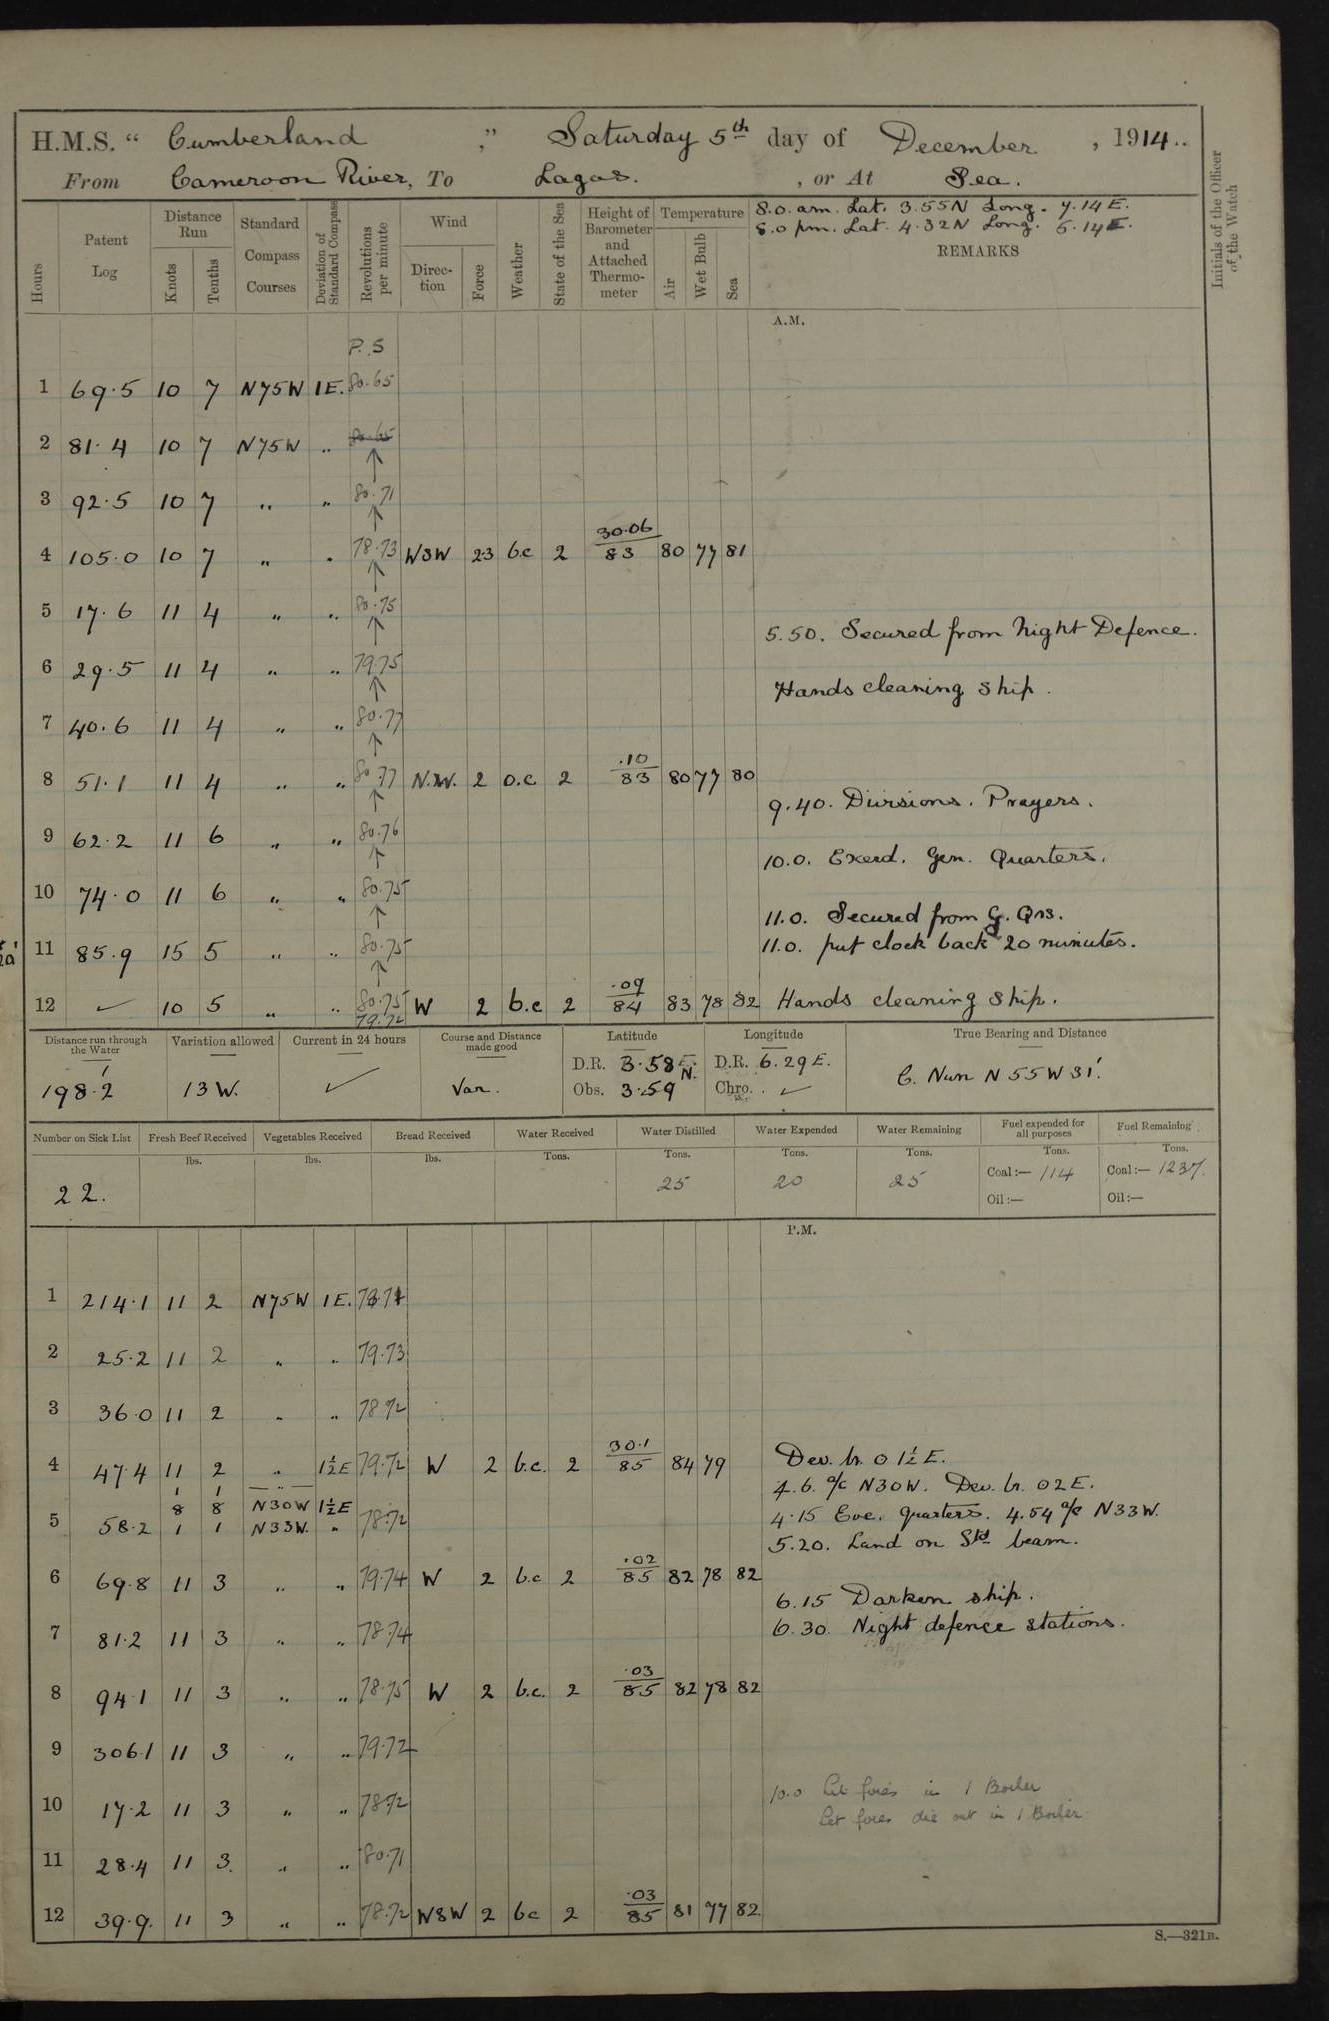 H.M.S. " Cumberland ," Saturday 5th day of December , 1914..
From Cameroon River, To Lagos. , or At Sea.
Initials of the Officer of the Watch
Hours Patent Log Distance Run Knots Tenths Standard Compass Courses Deviation of Standard Compass Revolutions per minute Wind Direction Force Weather State of the Sea Height of Barometer and Attached Thermometer Temperature Air Wet Bulb Sea
8.0. am. Lat. 3.55N Long. 7.14E.
8.0 pm. Lat. 4.32N Long. 5.14E.
REMARKS
A.M.
P.S
1 69.5 10 7 N75W 1E. 80.65
2 81.4 10 7 N75W ..
3 92.5 10 7 .. .. 80.71
4 105.0 10 7 .. .. 78.73 WSW 2.3 b.c 2 30.06/83 80 77 81
5 17.6 11 4 .. .. 80.75
5.50. Secured from Night Defence.
6 29.5 11 4 .. .. 79.75
Hands cleaning ship.
7 40.6 11 4 .. .. 80.77
8 51.1 11 4 .. .. 80.77 N.W. 2 o.c 2 .10/83 80 77 80
9.40. Divisions. Prayers.
9 62.2 11 6 .. .. 80.76
10.0. Exerd. Gen. Quarters.
10 74.0 11 6 .. .. 80.75
11.0. Secured from G. Qrs.
11 85.9 15 5 .. .. 80.75
11.0. put clock back 20 minutes.
12 ✓ 10 5 .. .. 80.75 79.72 W 2 b.c 2 .09/84 83 78 82 Hands cleaning ship.
Distance run through the Water Variation allowed Current in 24 hours Course and Distance made good Latitude Longitude True Bearing and Distance
198.2 13 W. ✓ Var. D.R. 3.58 N. D.R. 6.29 E. C. Nun N 55 W 31'.
Obs. 3.59 Chro. ✓
Number on Sick List Fresh Beef Received Vegetables Received Bread Received Water Received Water Distilled Water Expended Water Remaining Fuel expended for all purposes Fuel Remaining
lbs. lbs. lbs. Tons. Tons. Tons. Tons. Tons. Tons.
22. 25 20 25 Coal:— 114 Coal:— 1237.
Oil:— Oil:—
P.M.
1 214.1 11 2 N75W 1E.
2 25.2 11 2 .. .. 79.73
3 36.0 11 2 .. .. 78.72
4 47.4 11 2 .. 1½E 79.72 W 2 b.c. 2 30.1/85 84 79
Dev. by ☉ 1½ E.
1 1
4.6. a/c N30W. Dev. by ☉ 2E.
8 8 N30W 1½E
5 58.2 1 1 N33W. .. 78.72
4.15 Eve. Quarters. 4.54 a/c N33W.
5.20. Land on Std beam.
6 69.8 11 3 .. .. 79.74 W 2 b.c 2 .02/85 82 78 82
6.15 Darken ship.
7 81.2 11 3 .. .. 78.74
6.30. Night defence stations.
8 94.1 11 3 .. .. 78.75 W 2 b.c. 2 .03/85 82 78 82
9 306.1 11 3 .. .. 79.72
10 17.2 11 3 .. .. 78.72
10.0 Lit fires in 1 Boiler
Let fires die out in 1 Boiler
11 28.4 11 3. .. .. 80.71
12 39.9. 11 3 .. .. 78.72 WSW 2 bc 2 .03/85 81 77 82
S.—321B.